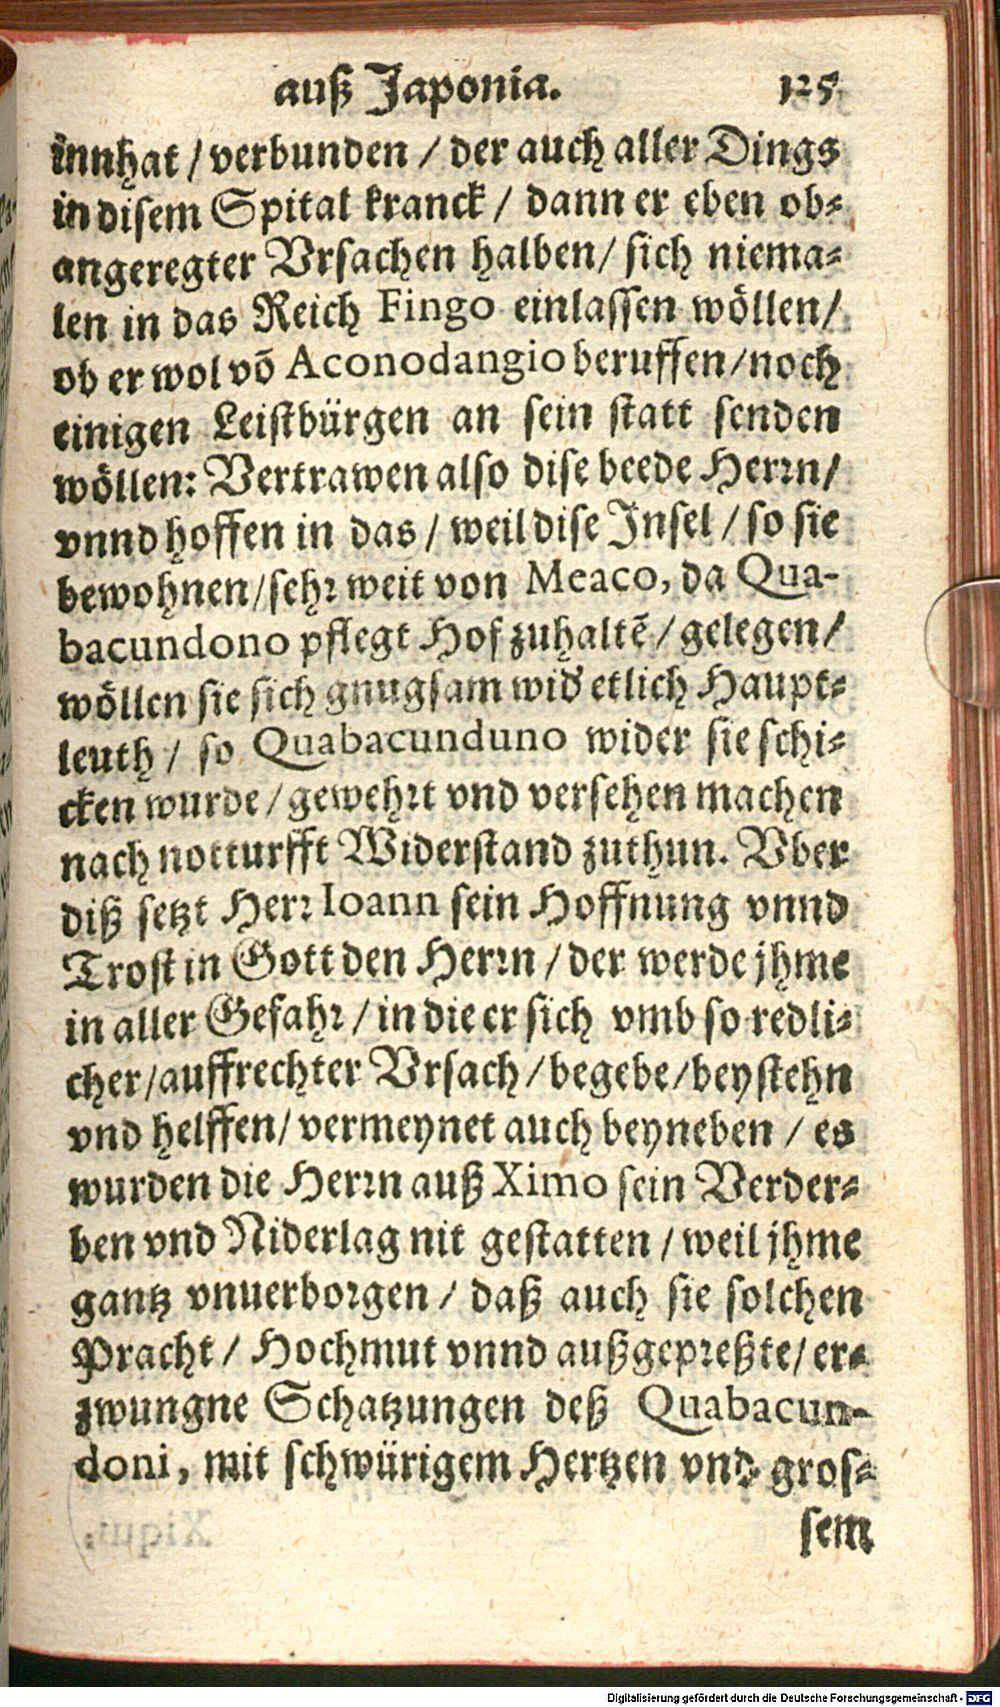 auß Japonia. 125
innhat / verbunden / der auch aller Dings
in disem Spital kranck / dann er eben ob-
angeregter Vrsachen halben / sich niema-
len in das Reich Fingo einlassen wöllen /
ob er wol võ Aconodangio beruffen / noch
einigen Leistbürgen an sein statt senden
wöllen: Vertrawen also dise beede Herrn /
vnnd hoffen in das / weil dise Insel / so sie
bewohnen / sehr weit von Meaco, da Qua-
bacundono pflegt Hof zuhaltẽ / gelegen /
wöllen sie sich gnugsam wid' etlich Haupt-
leuth / so Quabacunduno wider sie schi-
cken wurde / gewehrt vnd versehen machen
nach notturfft Widerstand zuthun. Vber
diß setzt Herr Ioann sein Hoffnung vnnd
Trost in Gott den Herrn / der werde jhme
in aller Gefahr / in die er sich vmb so redli-
cher / auffrechter Vrsach / begebe / beystehn
vnd helffen / vermeynet auch beyneben / es
wurden die Herrn auß Ximo sein Verder-
ben vnd Niderlag nit gestatten / weil jhme
gantz vnuerborgen / daß auch sie solchen
Pracht / Hochmut vnnd außgepreßte / er-
zwungne Schatzungen deß Quabacun-
doni, mit schwürigem Hertzen vnd gros-
sem
Digitalisierung gefördert durch die Deutsche Forschungsgemeinschaft - DFG